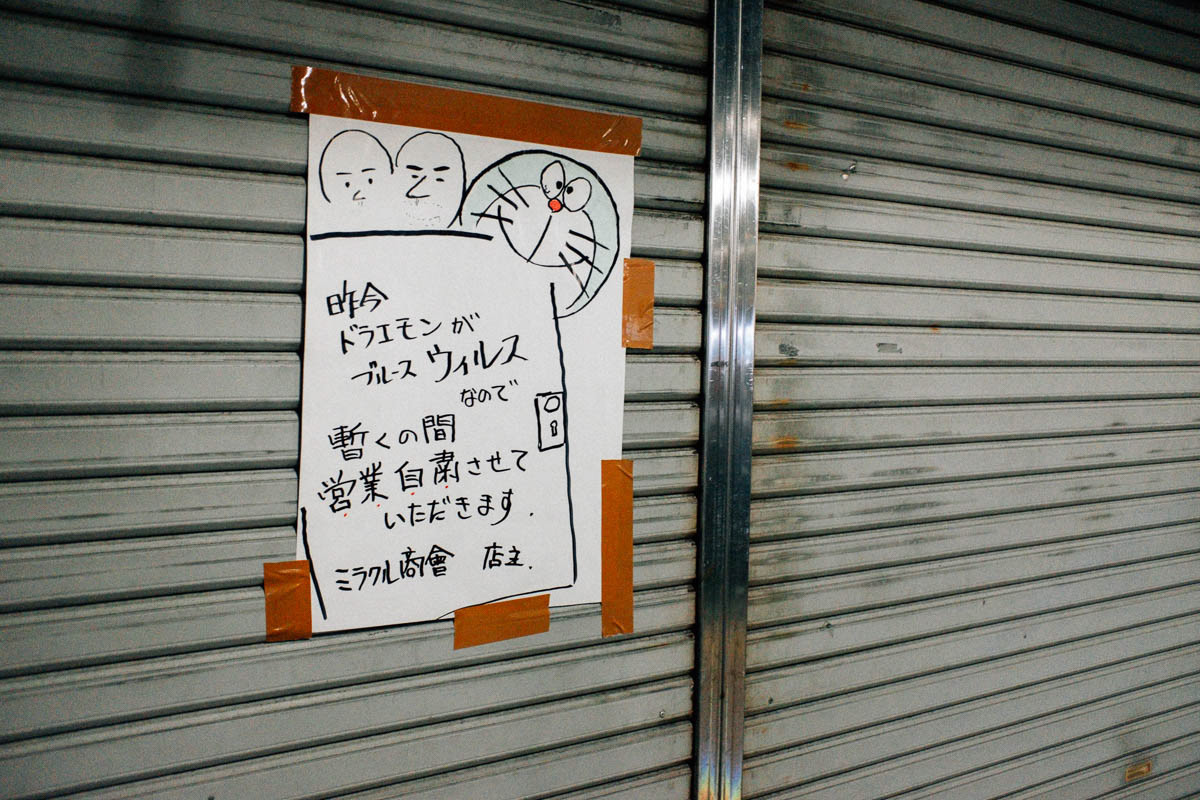 昨今
ドラエモンが
ブルース ウィルス
なので
暫くの間
営業自粛させて
いただきます.
ミラクル商會 店主.